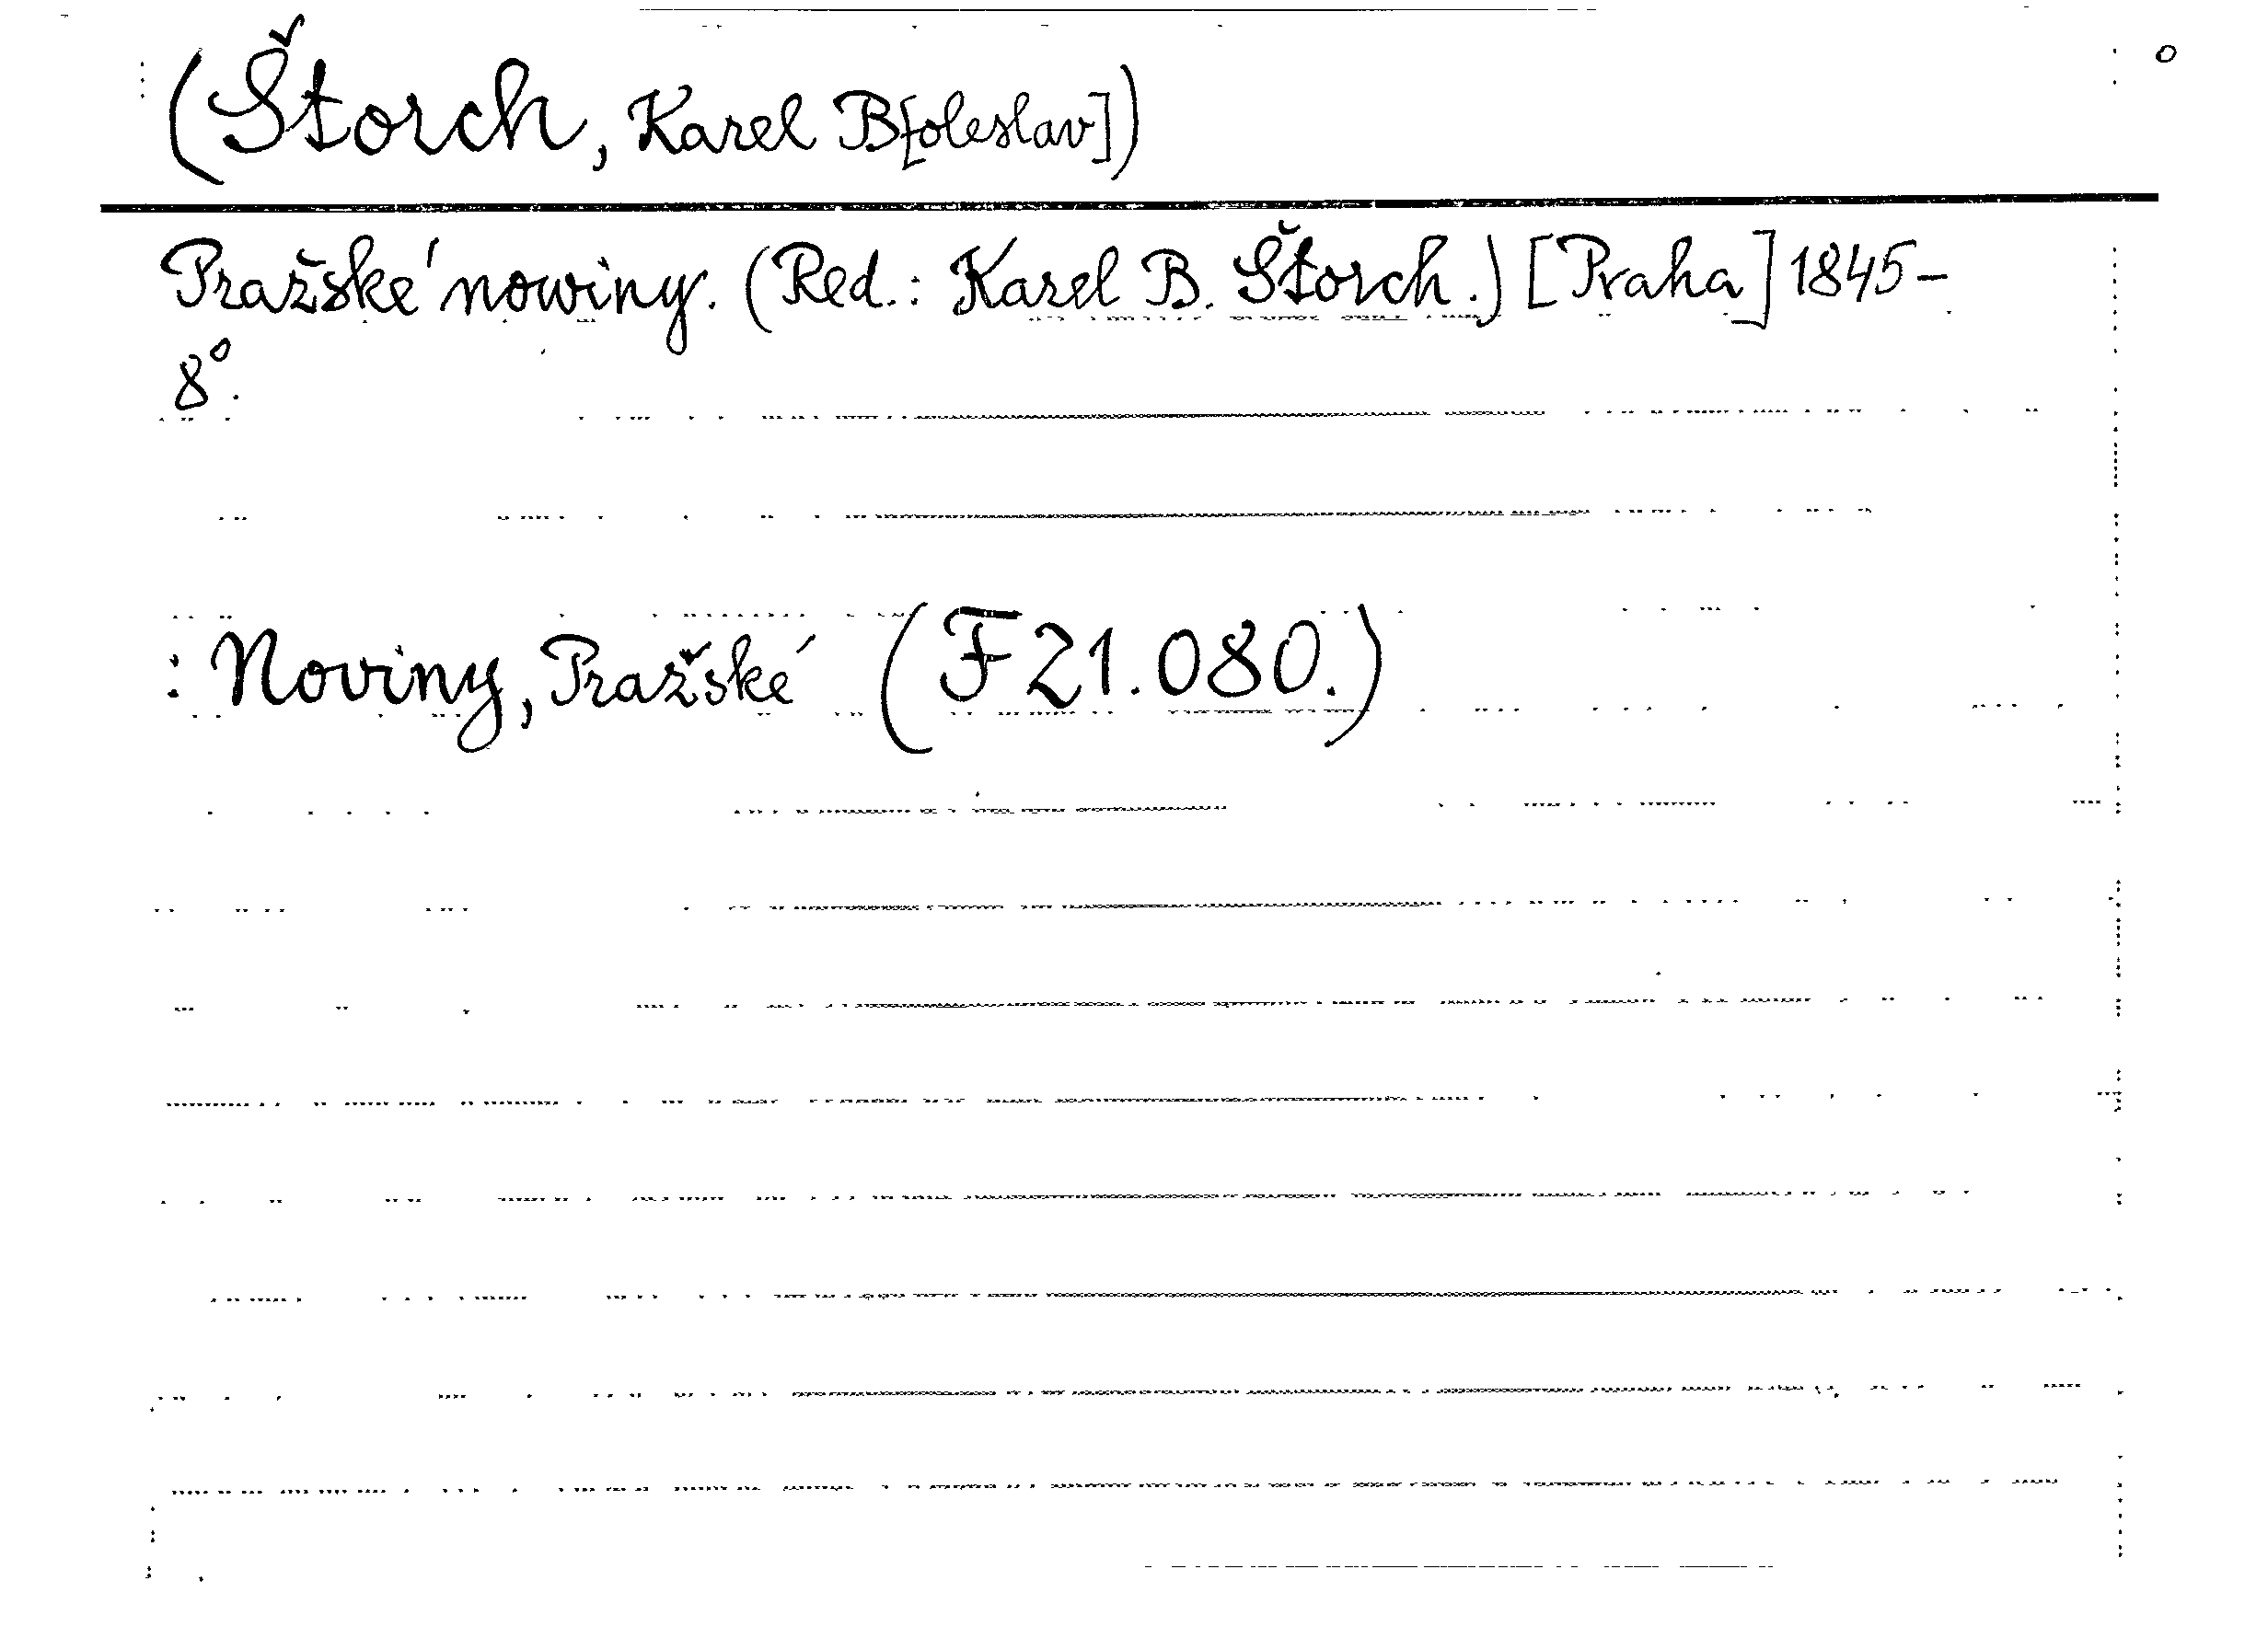 (Štorch, Karel B[oleslav])
Pražské nowiny. (Red.: Karel B. Štorch.) [Praha] 1845-
8°.
: Noviny, Pražské (F 21.080.)